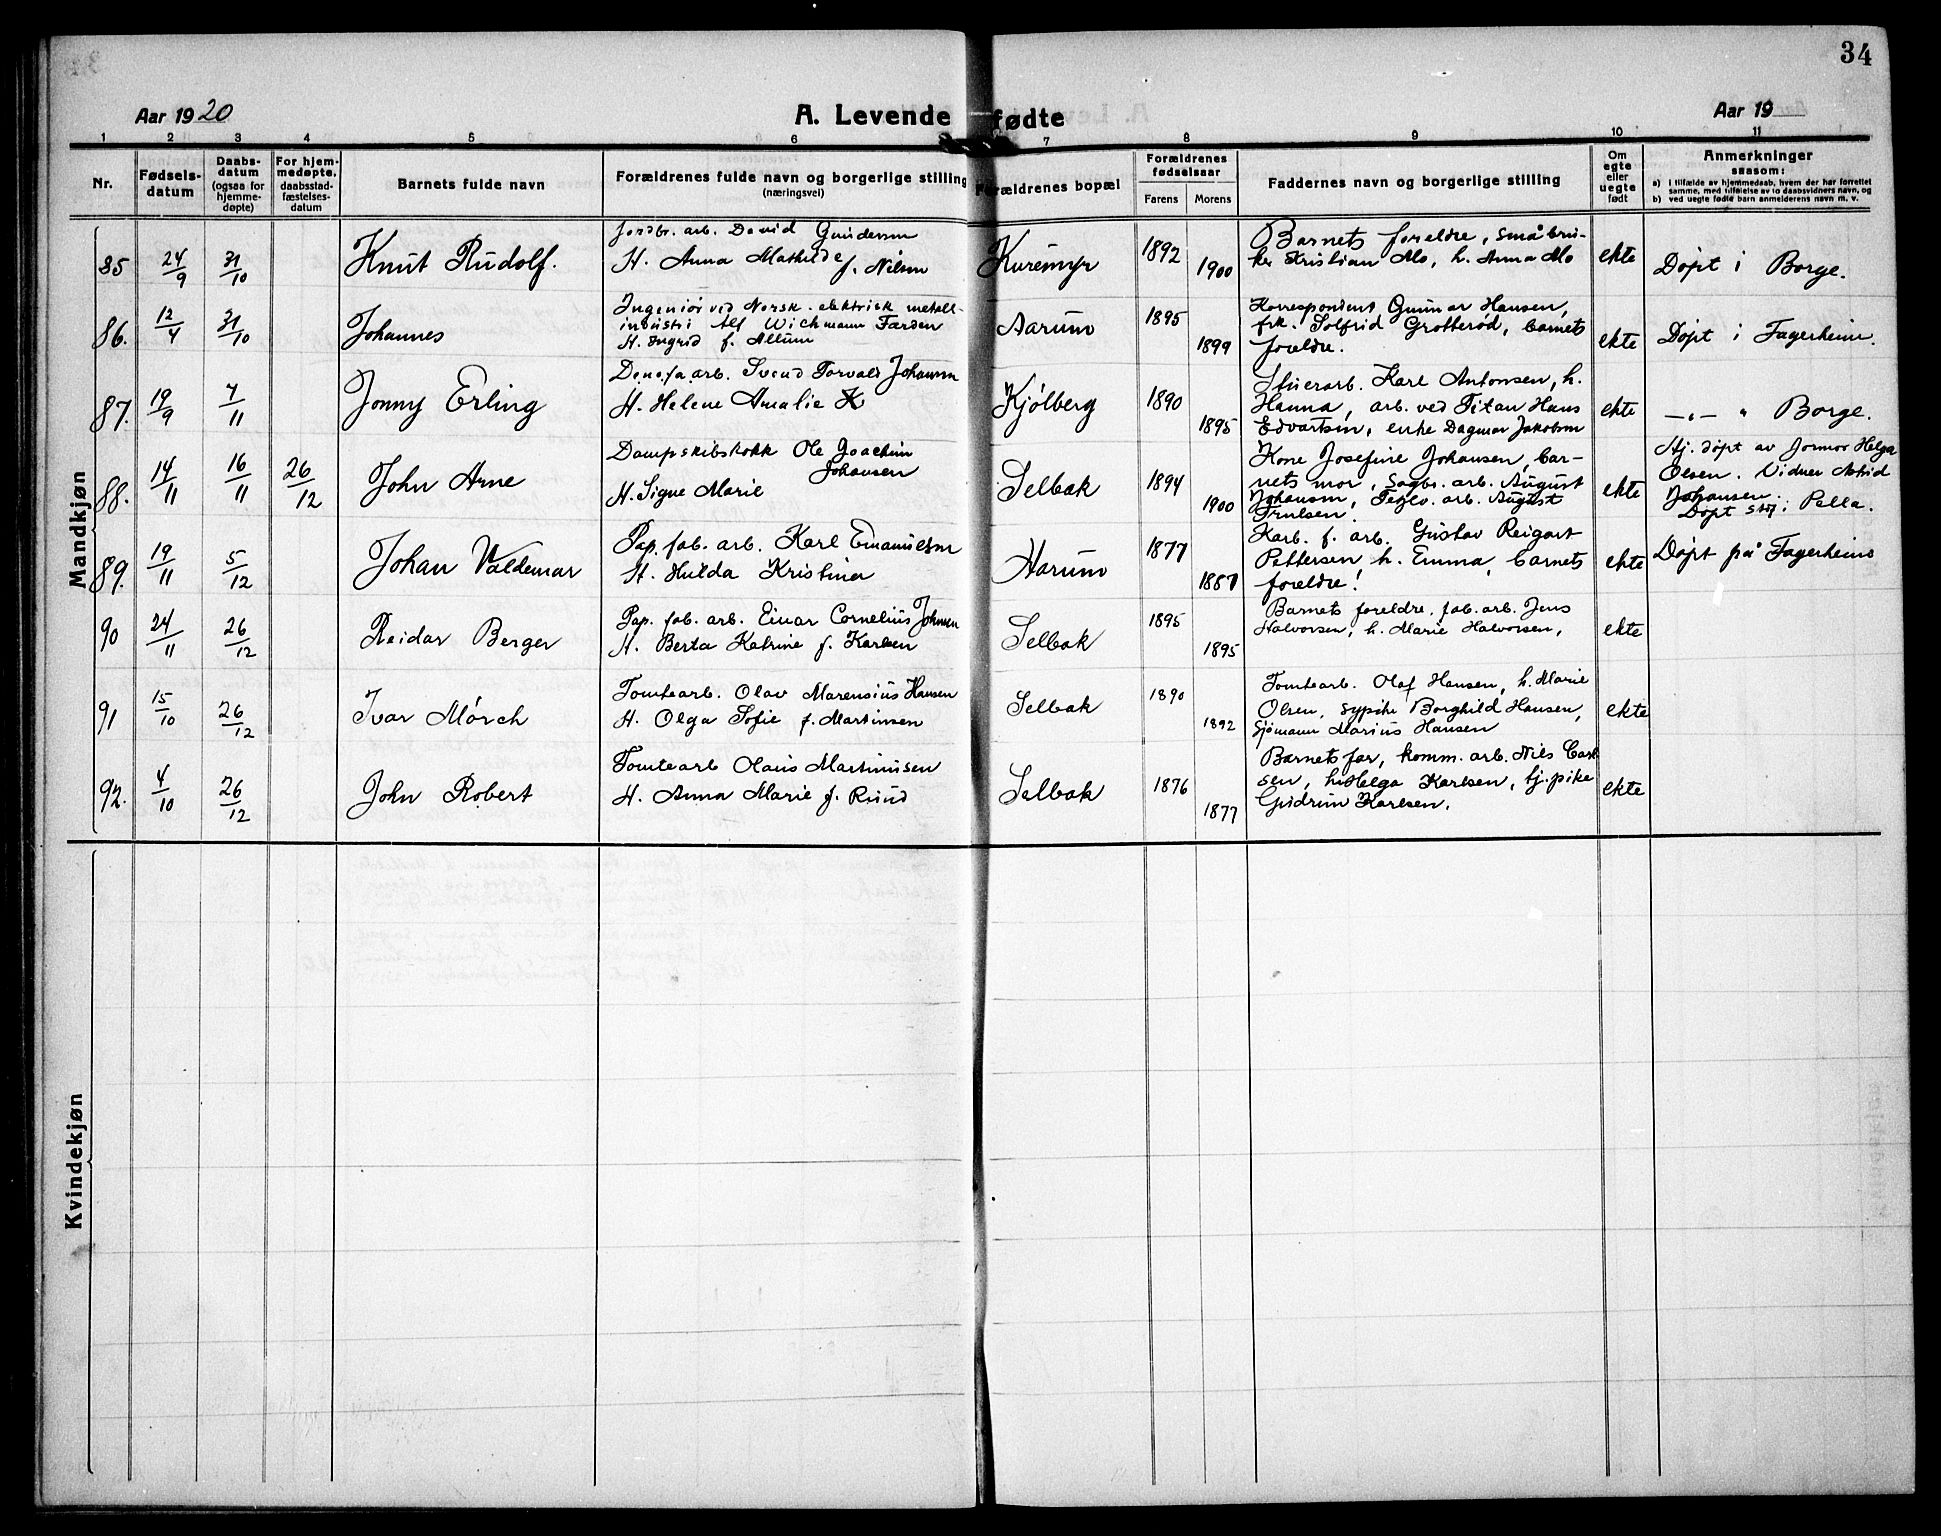 34
Aar 1920
A. Levende fødte
Aar 19
1 2 3 4 5 6 7 8 9 10 11
Nr.
Fødsels-
datum
Daabs-
datum
(ogsaa for
hjemme-
døpte)
For hjem-
medøpte,
daabsstad-
fæstelses-
datum
Barnets fulde navn
Forældrenes fulde navn og borgerlige stilling
(næringsvei)
Forældrenes bopæl
Forældrenes
fødselsaar
Farens Morens
Faddernes navn og borgerlige stilling
Om
egte
eller
uegte
født
Anmerkninger
saasom:
a) I tilfælde av hjemmedaab, hvem der har forrettet
samme, med tilføielse av to daabsvidners navn, og
b) ved uegte fødte barn anmelderens navn m. v.
Mandkjøn
85 24/9 31/10
Knut Rudolf.
Jordbr. arb. David Gundersen
H. Anna Mathilde f. Nilsen
Kuremyr
1892
1900
Barnets foreldre, småbru-
ker Kristian Mo, h. Anna Mo
ekte
Døpt i Borge.
86. 12/4 31/10
Johannes
Ingeniør ved Norsk. elektrisk metall-
industri Alf Wichmann Farden
H. Ingrid f. Allum
Aarum
1895
1899
Korrespondent Gunnar Hansen,
frk. Solfrid Grotterød, barnets
foreldre.
ekte
Døpt i Fagerheim.
87. 19/9 7/11
Jonny Erling
Denofa arb. Svend Torvald Johansen
H. Helene Amalie
Kjølberg
1890
1895
Stuerarb. Karl Antonsen, h.
Hanna, arb. ved Titan Hans
Edvartsen, enke Dagmar Jakobsen
ekte
—〃— 〃 Borge.
88. 14/11 16/11 26/12
John Arne
Dampskibskokk Ole Joachim
Johansen
H. Signe Marie
Selbak
1894
1900
Kone Josefine Johansen, bar-
nets mor, Sagbr. arb. August
Johansen, Teglv. arb. August
Trulsen.
ekte
Hj. døpt av Jormor Helga
Olsen. Vidner Astrid
Johansen.
Døpt : Pella.
89. 19/11 5/12
Johan Valdemar
Pap. fab. arb. Karl Emanuelsen
H. Hulda Kristina
Aarum
1877
1887
Karb. f. arb. Gustav Reigart
Pettersen h. Emma, barnets
foreldre!
ekte
Døpt på Fagerheim
90 24/11 26/12
Reidar Berger
Pap. fab. arb. Einar Cornelius Johnsen
H. Berta Katrine f. Karlsen
Selbak
1895
1895
Barnets foreldre, fab. arb. Jens
Halvorsen, h. Marie Halvorsen,
ekte
91 15/10 26/12
Ivar Mørch
Tomtearb. Olav Marensius Hansen
H. Olga Sofie f. Martinsen
Selbak
1890
1892
Tomtearb. Olaf Hansen, h. Marie
Olsen, sypike Borghild Hansen,
Sjømann Marius Hansen
ekte
92. 4/10 26/12
John Robert
Tomtearb Olaus Martinusen
H. Anna Marie f. Ruud
Selbak
1876
1877
Barnets far, komm. arb. Nils Carl-
sen, h. Helga Karlsen, tj. pike
Gudrun Karlsen.
ekte
Kvindekjøn